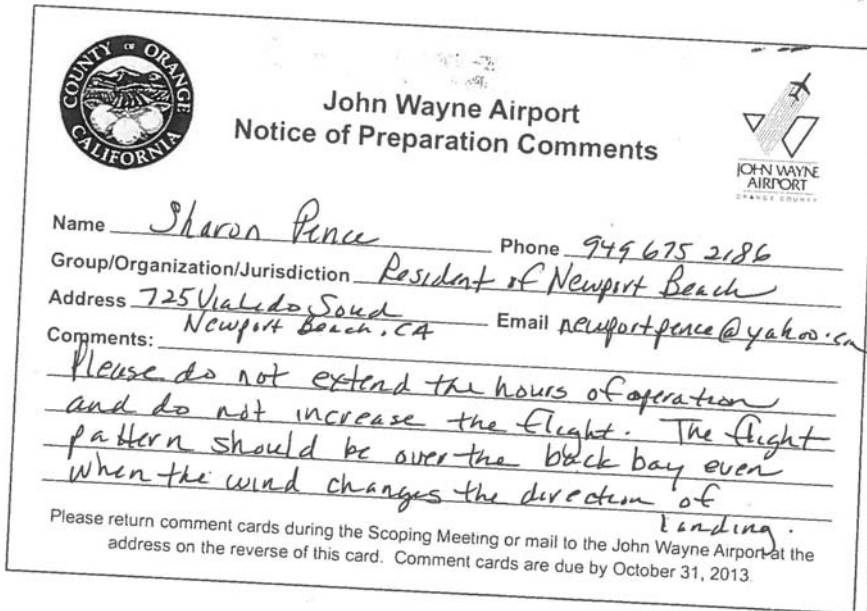 COUNTY OF ORANGE
CALIFORNIA
John Wayne Airport
Notice of Preparation Comments
JOHN WAYNE
AIRPORT
ORANGE COUNTY
Name Sharon Pence Phone 949 675 2186
Group/Organization/Jurisdiction Resident of Newport Beach
Address 725 Via Lido Soud Email newportpence@yahoo.com
Newport Beach, CA
Comments:
Please do not extend the hours of operation
and do not increase the flight. The flight
pattern should be over the back bay even
when the wind changes the direction of
landing.
Please return comment cards during the Scoping Meeting or mail to the John Wayne Airport at the
address on the reverse of this card. Comment cards are due by October 31, 2013.